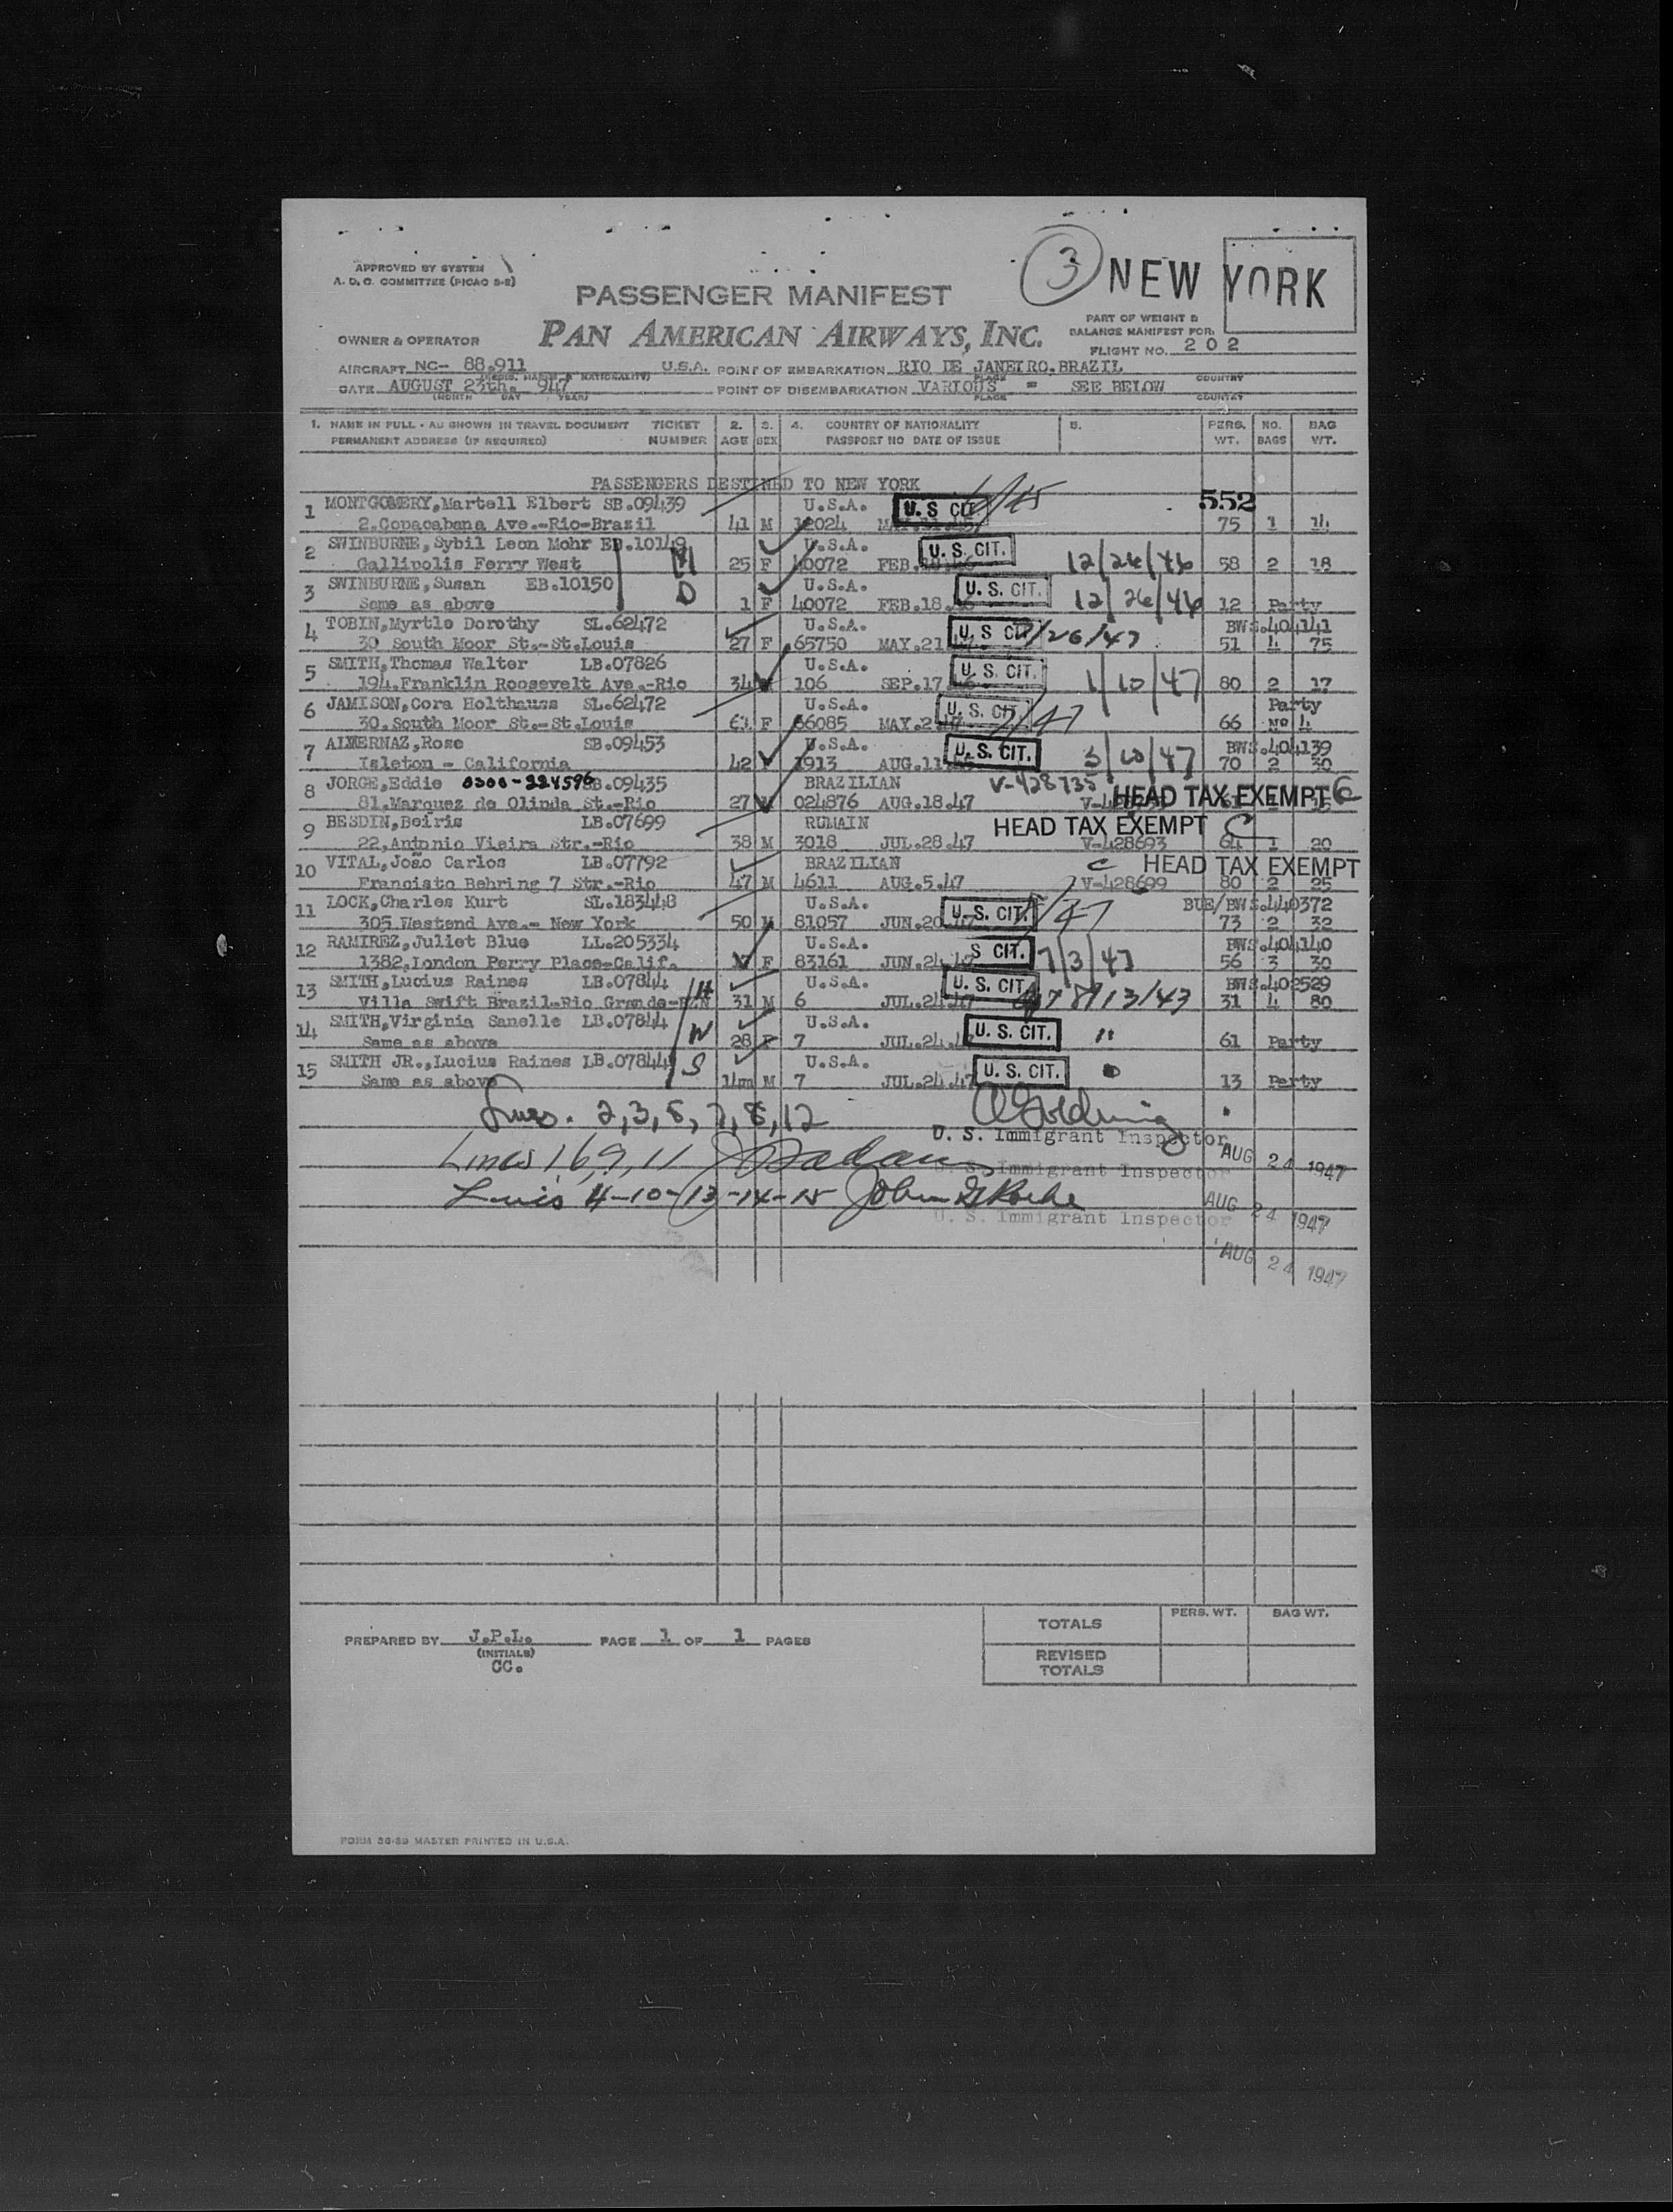 APPROVED BY SYSTEM
A. D. C. COMMITTEE (PICAO S-2)
3 NEW YORK
PASSENGER MANIFEST
PART OF WEIGHT &
BALANCE MANIFEST FOR:
OWNER & OPERATOR PAN AMERICAN AIRWAYS, INC.
FLIGHT NO. 202
AIRCRAFT NC- 88.911 U.S.A. POINT OF EMBARKATION RIO DE JANEIRO.BRAZIL
PLACE COUNTRY
DATE AUGUST 23th. 947 POINT OF DISEMBARKATION VARIOUS = SEE BELOW
(MONTH DAY YEAR) PLACE COUNTRY
1. NAME IN FULL - AS SHOWN IN TRAVEL DOCUMENT TICKET 2. 3. 4. COUNTRY OF NATIONALITY 5. PERS. NO. BAG
PERMANENT ADDRESS (IF REQUIRED) NUMBER AGE SEX PASSPORT NO DATE OF ISSUE WT. BAGS WT.
PASSENGERS DESTINED TO NEW YORK
1 MONTGOMERY,Martell Elbert SB.09439 U.S.A. U. S CIT 552
2.Copacabana Ave.-Rio-Brazil 41 M 12024 75 1 14
2 SWINBURNE,Sybil Leon Mohr EB.10149 U.S.A. U. S. CIT.
Gallipolis Ferry West 25 F 40072 FEB. 12/26/46 58 2 18
3 SWINBURNE,Susan EB.10150 U.S.A. U. S. CIT.
Same as above D 1 F 40072 FEB.18. 12/26/46 12 Party
4 TOBIN,Myrtle Dorothy SL.62472 U.S.A. U. S CIT BWS.404141
30 South Moor St.-St.Louis 27 F 65750 MAY.21 51 4 75
5 SMITH,Thomas Walter LB.07826 U.S.A. U. S. CIT.
194.Franklin Roosevelt Ave.-Rio 34 106 SEP.17 1/10/47 80 2 17
6 JAMISON,Cora Holthauss SL.62472 U.S.A. U. S. CIT Party
30.South Moor St.-St.Louis F 66085 MAY.2 66 Nº 4
7 ALVERNAZ,Rose SB.09453 U.S.A. U. S. CIT. BWS.404139
Isleton - California 42 F 1913 AUG.11 3/10/47 70 2 30
8 JORGE,Eddie 0300-224596 SB.09435 BRAZILIAN V-428735
81.Marquez de Olinda St.-Rio 27 M 024876 AUG.18.47 HEAD TAX EXEMPT C
9 BESDIN,Beiris LB.07699 RUMAIN HEAD TAX EXEMPT C
22,Antonio Vieira Str.-Rio 38 M 3018 JUL.28.47 V-428693 64 1 20
10 VITAL,João Carlos LB.07792 BRAZILIAN C HEAD TAX EXEMPT
Francisto Behring 7 Str.-Rio 47 M 4611 AUG.5.47 V-428699 80 2 25
11 LOCK,Charles Kurt SL.183448 U.S.A. U. S. CIT. BUE/BWS.440372
305.Westend Ave.- New York 50 M 81057 JUN.20 73 2 32
12 RAMIREZ,Juliet Blue LL.205334 U.S.A. S CIT. 7/3/47 BWS.404140
1382.London Perry Place-Calif. F 83161 JUN.24 56 3 30
13 SMITH,Lucius Raines LB.07844 H U.S.A. U. S. CIT. BWS.402529
Villa Swift Brazil-Rio Grande- 31 M 6 JUL.24.47 8/13/43 31 4 80
14 SMITH,Virginia Sanelle LB.07844 W U.S.A. U. S. CIT. "
Same as above 28 F 7 JUL.24. 61 Party
15 SMITH JR.,Lucius Raines LB.07844 S U.S.A. U. S. CIT.
Same as above 14m M 7 JUL.24.47 13 Party
2,3,5,7,8,12
U. S. Immigrant Inspector AUG 24 1947
Lines 1 6,9,11
U. S. Immigrant Inspector
4-10-13-14-15 John
AUG 24 1947
U. S. Immigrant Inspector
AUG 24 1947
PREPARED BY J.P.L. PAGE 1 OF 1 PAGES
(INITIALS)
CC.
PERS. WT. BAG WT.
TOTALS
REVISED
TOTALS
FORM 36-39 MASTER PRINTED IN U.S.A.